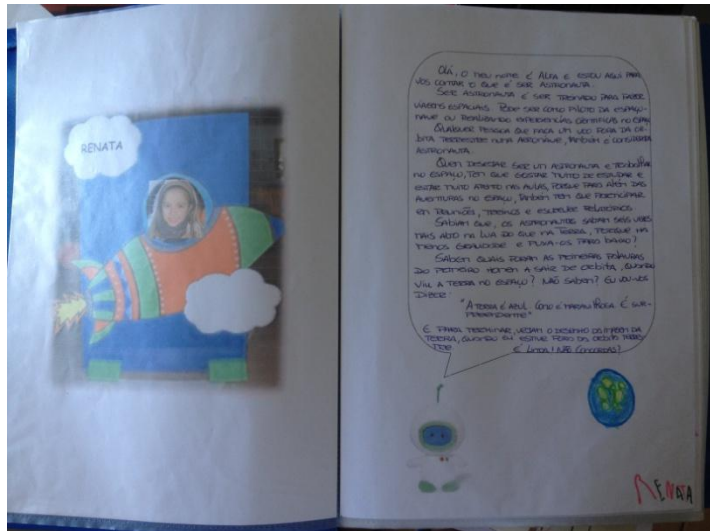 RENATA
OLÁ, O MEU NOME É ALFA E ESTOU AQUI PARA
VOS CONTAR O QUE É SER ASTRONAUTA.
SER ASTRONAUTA É SER TREINADO PARA FAZER
VIAGENS ESPACIAIS. PODE SER COMO PILOTO DA ESPAÇO-
NAVE OU REALIZANDO EXPERIÊNCIAS CIENTIFICAS NO ESPAÇO
QUALQUER PESSOA QUE FAÇA UM VOO FORA DA ÓR-
BITA TERRESTRE NUMA AERONAVE, TAMBÉM É CONSIDERADA
ASTRONAUTA.
QUEM DESEJAR SER UM ASTRONAUTA E TRABALHAR
NO ESPAÇO, TEM QUE GOSTAR MUITO DE ESTUDAR E
ESTAR MUITO ATENTO NAS AULAS, PORQUE PARA ALÉM DAS
AVENTURAS NO ESPAÇO, TAMBÉM TEM QUE PARTICIPAR
EM REUNIÕES, TREINOS E ESCREVER RELATÓRIOS.
SABIAM QUE, OS ASTRONAUTAS SALTAM SEIS VEZES
MAIS ALTO NA LUA DO QUE NA TERRA, PORQUE HÁ
MENOS GRAVIDADE A PUXÁ-OS PARA BAIXO?
SABEM QUAIS FORAM AS PRIMEIRAS PALAVRAS
DO PRIMEIRO HOMEM A SAIR DE ÓRBITA, QUANDO
VIU A TERRA NO ESPAÇO? NÃO SABEM? EU VOU-VOS
DIZER:
"A TERRA É AZUL. COMO É MARAVILHOSA. É SUR-
PREENDENTE"
E PARA TERMINAR, VEJAM O DESENHO DA IMAGEM DA
TERRA, QUANDO EU ESTIVE FORA DA ÓRBITA TERRES-
TRE É LINDA! NÃO CONCORDAS?
RENATA